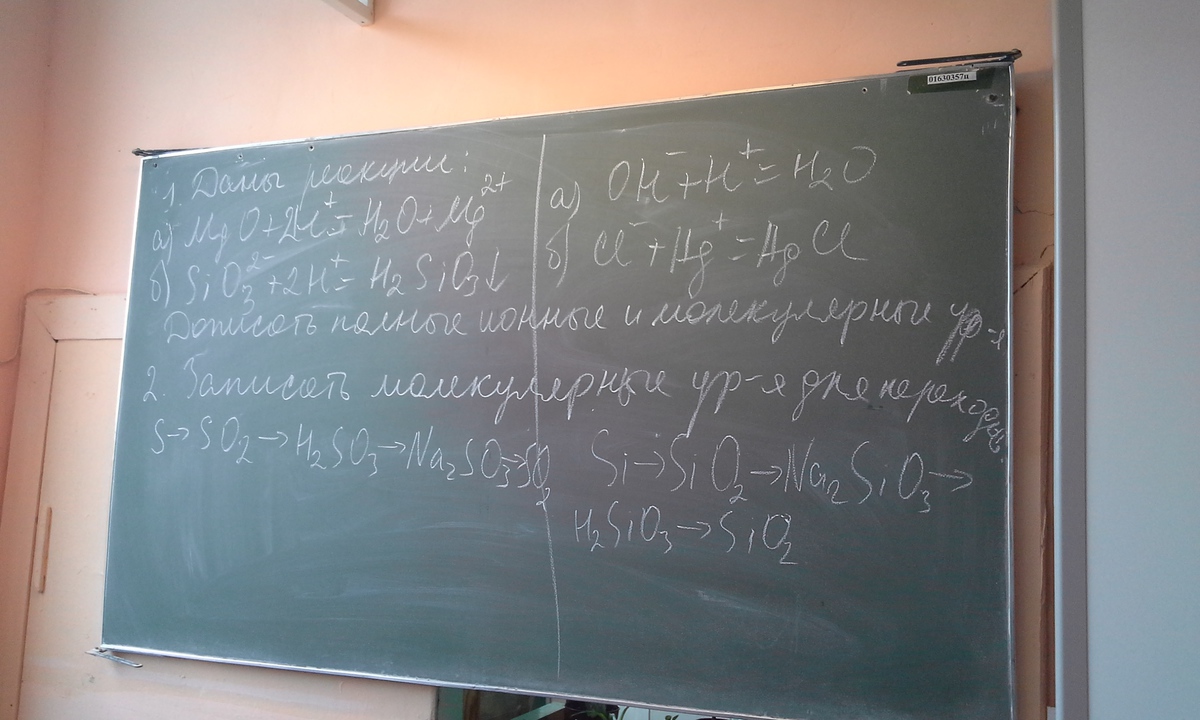 01630357п
1. Даны реакции:
а) MgO+2H⁺=H₂O+Mg²⁺
б) SiO₃²⁻+2H⁺=H₂SiO₃↓
а) OH⁻+H⁺=H₂O
б) Cl⁻+Ag⁺=AgCl
Дописать полные ионные и молекулярные ур-я
2. Записать молекулярные ур-я для перехода:
S→SO₂→H₂SO₃→Na₂SO₃→SO₂
Si→SiO₂→Na₂SiO₃→
H₂SiO₃→SiO₂